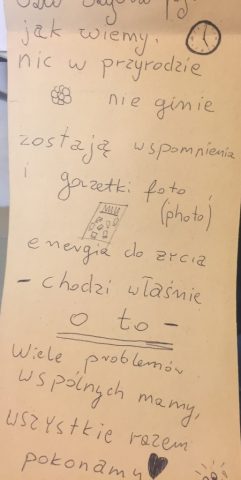 jak wiemy.
nic w przyrodzie
nie ginie
zostają wspomnienia
i gazetki foto
(photo)
energia do życia
- chodzi właśnie
o to -
Wiele problemów
wspólnych mamy,
wszystkie razem
pokonamy